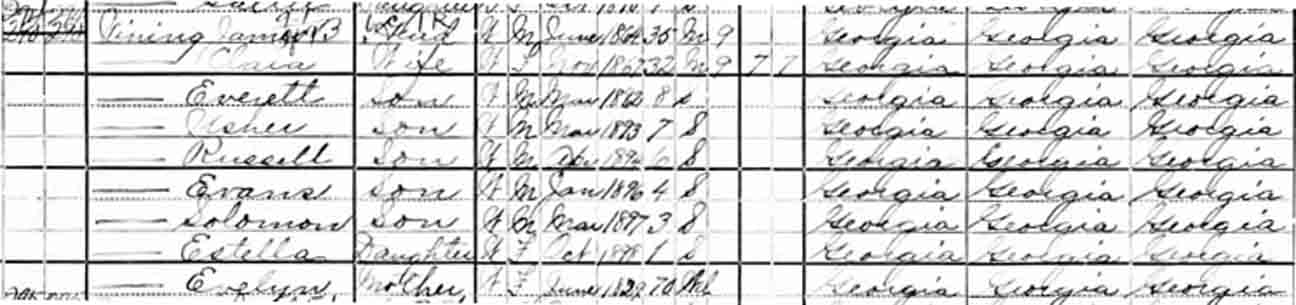 Vining James B Head W M June 1864 35 M 9 Georgia Georgia Georgia
Clara Wife W F Nov 1867 32 M 9 7 7 Georgia Georgia Georgia
Everett Son W M Mar 1862 8 S Georgia Georgia Georgia
Usher Son W M Mar 1893 7 S Georgia Georgia Georgia
Russell Son W M Apr 1894 6 S Georgia Georgia Georgia
Evans Son W M Jan 1896 4 S Georgia Georgia Georgia
Solomon Son W M Mar 1897 3 S Georgia Georgia Georgia
Estella Daughter W F Oct 1898 1 S Georgia Georgia Georgia
Evelyn Mother W F June 1829 70 Wd Georgia Georgia Georgia